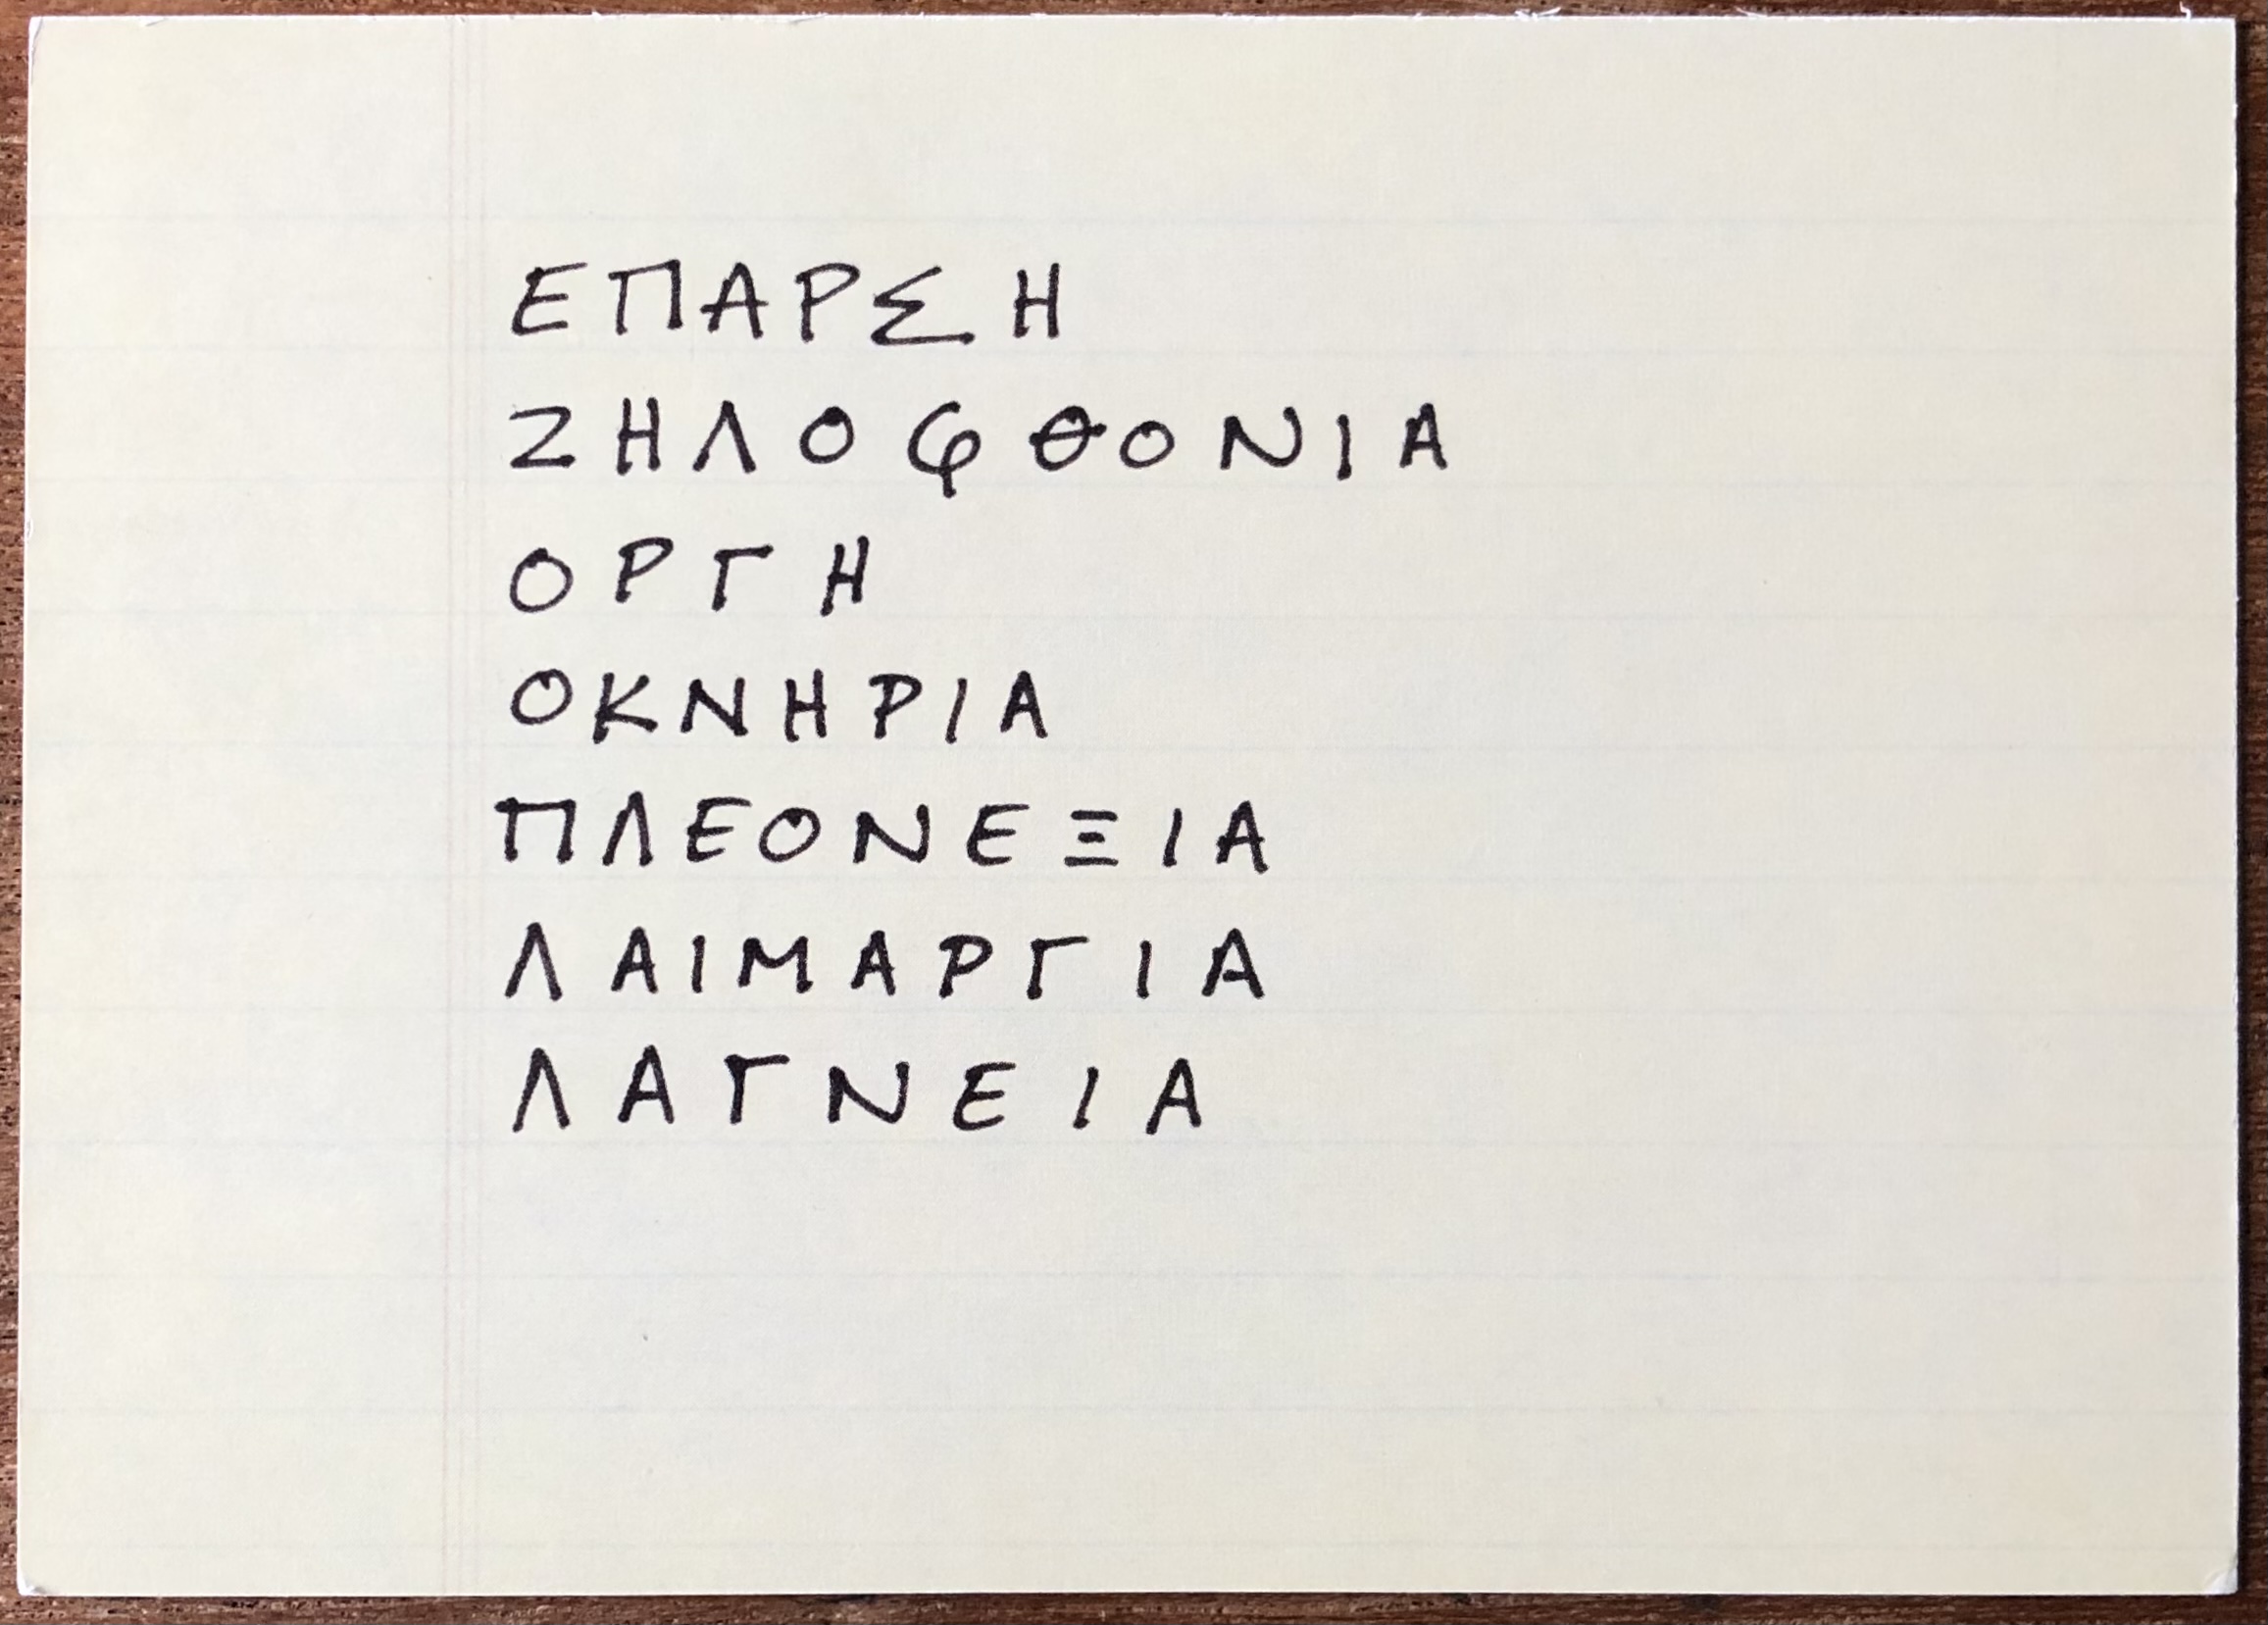 ΕΠΑΡΣΗ
ΖΗΛΟΦΘΟΝΙΑ
ΟΡΓΗ
ΟΚΝΗΡΙΑ
ΠΛΕΟΝΕΞΙΑ
ΛΑΙΜΑΡΓΙΑ
ΛΑΓΝΕΙΑ